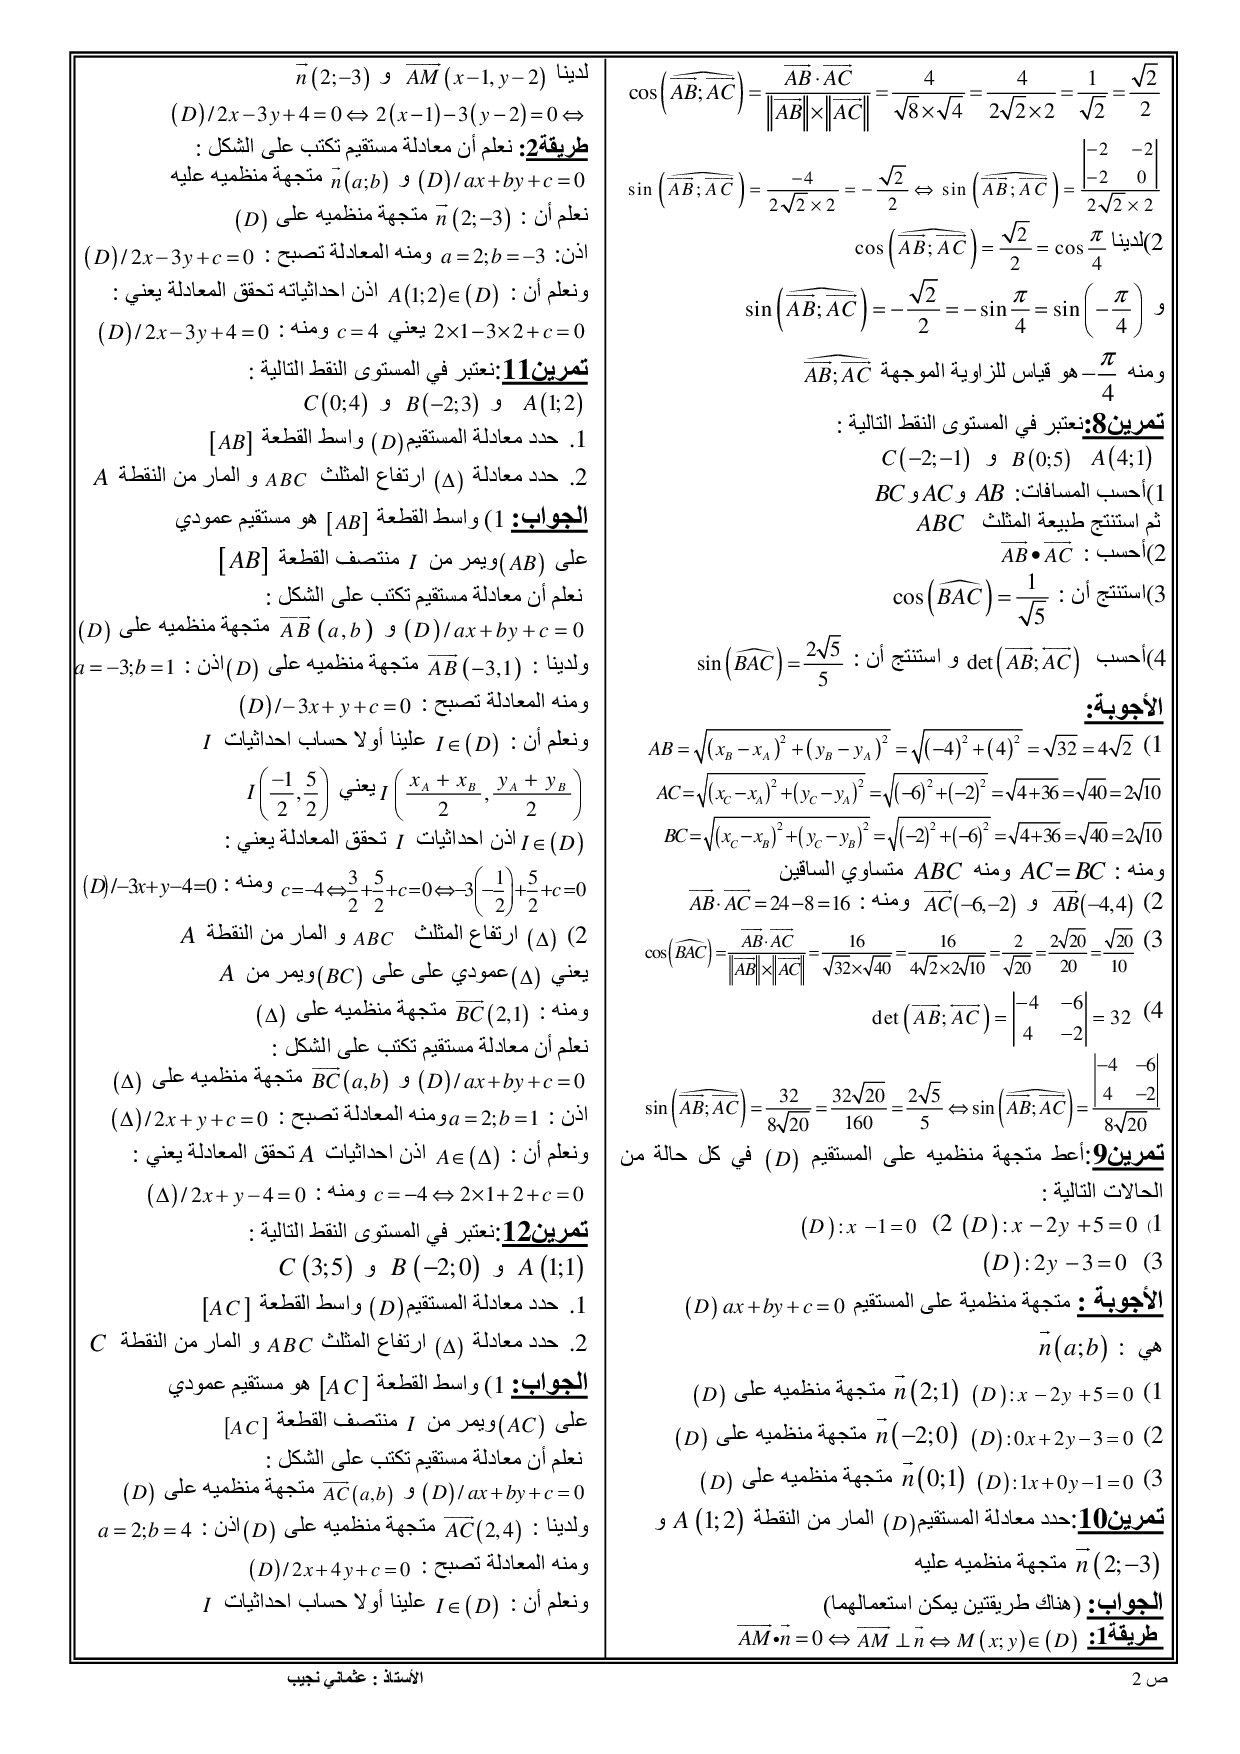 cos(AB;AC) = AB·AC / ‖AB‖×‖AC‖ = 4/√8×√4 = 4/2√2×2 = 1/√2 = √2/2
sin(AB;AC) = -4/2√2×2 = -√2/2 ⇔ sin(AB;AC) = |-2 -2; -2 0| / 2√2×2
2)لدينا cos(AB;AC) = √2/2 = cos π/4
و sin(AB;AC) = -√2/2 = -sin π/4 = sin(-π/4)
ومنه -π/4 هو قياس للزاوية الموجهة AB;AC
تمرين8:نعتبر في المستوى النقط التالية :
A(4;1) B(0;5) و C(-2;-1)
1)أحسب المسافات: AB و AC و BC
ثم استنتج طبيعة المثلث ABC
2)أحسب : AB•AC
3)استنتج أن : cos(BAC) = 1/√5
4)أحسب det(AB;AC) و استنتج أن : sin(BAC) = 2√5/5
الأجوبة:
1) AB = √((x_B - x_A)² + (y_B - y_A)²) = √((-4)² + (4)²) = √32 = 4√2
AC = √((x_C - x_A)² + (y_C - y_A)²) = √((-6)² + (-2)²) = √4+36 = √40 = 2√10
BC = √((x_C - x_B)² + (y_C - y_B)²) = √((-2)² + (-6)²) = √4+36 = √40 = 2√10
ومنه : AC = BC ومنه ABC متساوي الساقين
2) AB(-4,4) و AC(-6,-2) ومنه : AB·AC = 24-8 = 16
3) cos(BAC) = AB·AC / ‖AB‖×‖AC‖ = 16/√32×√40 = 16/4√2×2√10 = 2/√20 = 2√20/20 = √20/10
4) det(AB;AC) = |-4 -6; 4 -2| = 32
sin(AB;AC) = 32/8√20 = 32√20/160 = 2√5/5 ⇔ sin(AB;AC) = |-4 -6; 4 -2| / 8√20
تمرين9:أعط متجهة منظميه على المستقيم (D) في كل حالة من
الحالات التالية :
1) (D): x - 2y + 5 = 0 2) (D): x - 1 = 0
3) (D): 2y - 3 = 0
الأجوبة : متجهة منظمية على المستقيم (D) ax + by + c = 0
هي : n(a;b)
1) (D): x - 2y + 5 = 0 n(2;1) متجهة منظميه على (D)
2) (D): 0x + 2y - 3 = 0 n(-2;0) متجهة منظميه على (D)
3) (D): 1x + 0y - 1 = 0 n(0;1) متجهة منظميه على (D)
تمرين10:حدد معادلة المستقيم(D) المار من النقطة A(1;2) و
n(2;-3) متجهة منظميه عليه
الجواب: (هناك طريقتين يمكن استعمالهما)
طريقة1: AM•n = 0 ⇔ AM ⊥ n ⇔ M(x;y) ∈ (D)
لدينا AM(x-1, y-2) و n(2;-3)
(D)/2x - 3y + 4 = 0 ⇔ 2(x-1) - 3(y-2) = 0 ⇔
طريقة2: نعلم أن معادلة مستقيم تكتب على الشكل :
(D)/ax + by + c = 0 و n(a;b) متجهة منظميه عليه
نعلم أن : n(2;-3) متجهة منظميه على (D)
اذن: a = 2;b = -3 ومنه المعادلة تصبح : (D)/2x - 3y + c = 0
ونعلم أن : A(1;2)∈(D) اذن احداثياته تحقق المعادلة يعني :
2×1-3×2+c = 0 يعني c = 4 ومنه : (D)/2x - 3y + 4 = 0
تمرين11:نعتبر في المستوى النقط التالية :
A(1;2) و B(-2;3) و C(0;4)
1. حدد معادلة المستقيم(D) واسط القطعة [AB]
2. حدد معادلة (Δ) ارتفاع المثلث ABC و المار من النقطة A
الجواب: 1) واسط القطعة [AB] هو مستقيم عمودي
على (AB)ويمر من I منتصف القطعة [AB]
نعلم أن معادلة مستقيم تكتب على الشكل :
(D)/ax + by + c = 0 و AB(a,b) متجهة منظميه على (D)
ولدينا : AB(-3,1) متجهة منظميه على (D)اذن : a = -3;b = 1
ومنه المعادلة تصبح : (D)/-3x + y + c = 0
ونعلم أن : I∈(D) علينا أولا حساب احداثيات I
I((x_A + x_B)/2, (y_A + y_B)/2) يعني I(-1/2, 5/2)
I∈(D) اذن احداثيات I تحقق المعادلة يعني :
c=-4⇔3/2+5/2+c=0⇔-3(-1/2)+5/2+c=0 ومنه : (D)/-3x+y-4=0
2) (Δ) ارتفاع المثلث ABC و المار من النقطة A
يعني (Δ)عمودي على على (BC)ويمر من A
ومنه : BC(2,1) متجهة منظميه على (Δ)
نعلم أن معادلة مستقيم تكتب على الشكل :
(D)/ax + by + c = 0 و BC(a,b) متجهة منظميه على (Δ)
اذن : a = 2;b = 1ومنه المعادلة تصبح : (Δ)/2x + y + c = 0
ونعلم أن : A∈(Δ) اذن احداثيات A تحقق المعادلة يعني :
c = -4 ⇔ 2×1+2+c = 0 ومنه : (Δ)/2x + y - 4 = 0
تمرين12:نعتبر في المستوى النقط التالية :
A(1;1) و B(-2;0) و C(3;5)
1. حدد معادلة المستقيم(D) واسط القطعة [AC]
2. حدد معادلة (Δ) ارتفاع المثلث ABC و المار من النقطة C
الجواب: 1) واسط القطعة [AC] هو مستقيم عمودي
على (AC)ويمر من I منتصف القطعة [AC]
نعلم أن معادلة مستقيم تكتب على الشكل :
(D)/ax + by + c = 0 و AC(a,b) متجهة منظميه على (D)
ولدينا : AC(2,4) متجهة منظميه على (D)اذن : a = 2;b = 4
ومنه المعادلة تصبح : (D)/2x + 4y + c = 0
ونعلم أن : I∈(D) علينا أولا حساب احداثيات I
ص 2
الأستاذ : عثماني نجيب